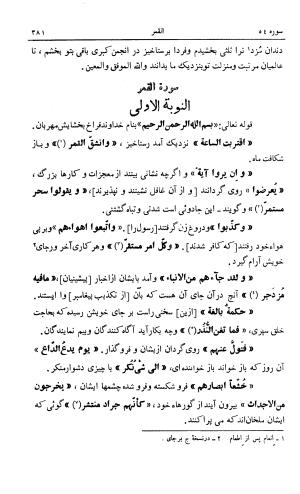 سوره ٥٤ القمر ٣٨١
دندان مُزد! نرا ثلثی بخشیدم وفردا برستاخیز در انجمن کبری باقی بتو بخشم ، تا
عالمیان مرتبت ومنزلت تو نزدیک ما بدانند والله الموفق والمعین.
سورة القمر
النوبة الاولی
قوله تعالی: «بسم الله الرحمن الرحیم» بنام خداوند فراخ بخشایش مهربان.
« اقتربت الساعة » نزدیک آمد رستاخیز ، « وانشق القمر (١) » و باز
شکافت ماه.
« و ان یروا آیة » و اگرچه نشانی بینند از معجزات و کارها بزرگ ،
« یُعرضوا » روی گردانند [ و از آن غافل نشینند و نپذیرند]، « و یقولوا سحر
مستمر (٢) » و گویند: این جادوئی است شدنی و تباه گشتنی.
« و کذبوا » ودروغ زن گرفتند [رسول را]. « واتبعوا اهواءهم » و بر پی
هواء خود رفتند [که کافر شدند]. « وکل امر مستقر (٣) » و هر کاری آخر ورجای٢
خویش آرام گیرد.
« و لقد جآءهم من الانباء » و آمد بایشان از اخبار [پیشینیان]، « مافیه
مُزدجر (٤) » آنچ در آن جای آن هست که بآن [از تکذیب پیغامبر] وا ایستند.
« حکمة بالغة » [ازین] سخنی راست بر جای خویش رسیده که بحاجت
خلق سپری، « فما تغن النُذُر (٥) » وچه بکار آید آگاه کنندگان وبیم نمایندگان.
« فتول عنهم » روی گردان ازیشان و فروگذار. « یوم یدع الداع »
آن روز که باز خواند باز خواننده ای، « الی شیٔ نُکر » با چیزی دشوار منکر.
« خُشعاً ابصارهم » فرو شکسته و فرو شده چشمها ایشان ، « یخرجون
من الاجداث » بیرون آیند از گورهاء خود، « کأنهم جراد منتشر (٧) » گوئی که
ایشان ملخان اند که می پراکنند.
١ - إنعام پس از إطعام ٢ - در نسخهٔ ج برجای .